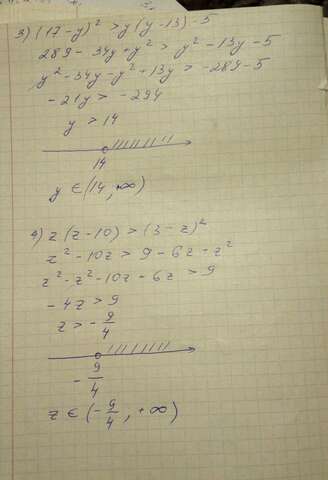 3) (17-y)² > y(y-13)-5
289-34y+y² > y²-13y-5
y²-34y-y²+13y > -289-5
-21y > -294
y > 14
14
y ∈ (14, +∞)
4) z(z-10) > (3-z)²
z²-10z > 9-6z-z²
z²-z²-10z-6z > 9
-4z > 9
z > -9/4
-9/4
z ∈ (-9/4, +∞)